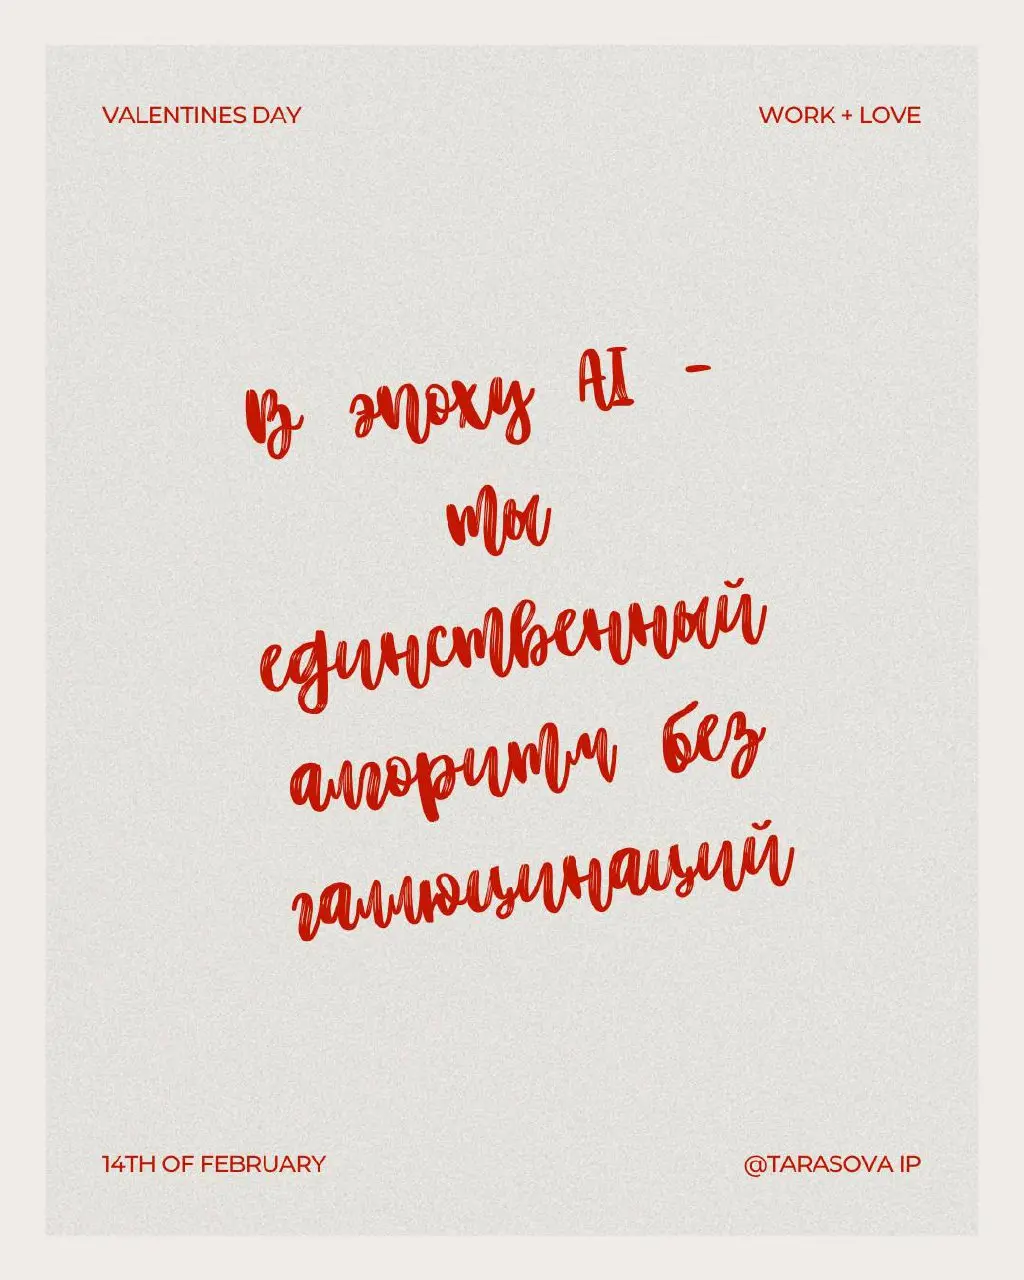 VALENTINES DAY
WORK + LOVE
В эпоху AI -
ты
единственный
алгоритм без
галлюцинаций
14TH OF FEBRUARY
@TARASOVA IP